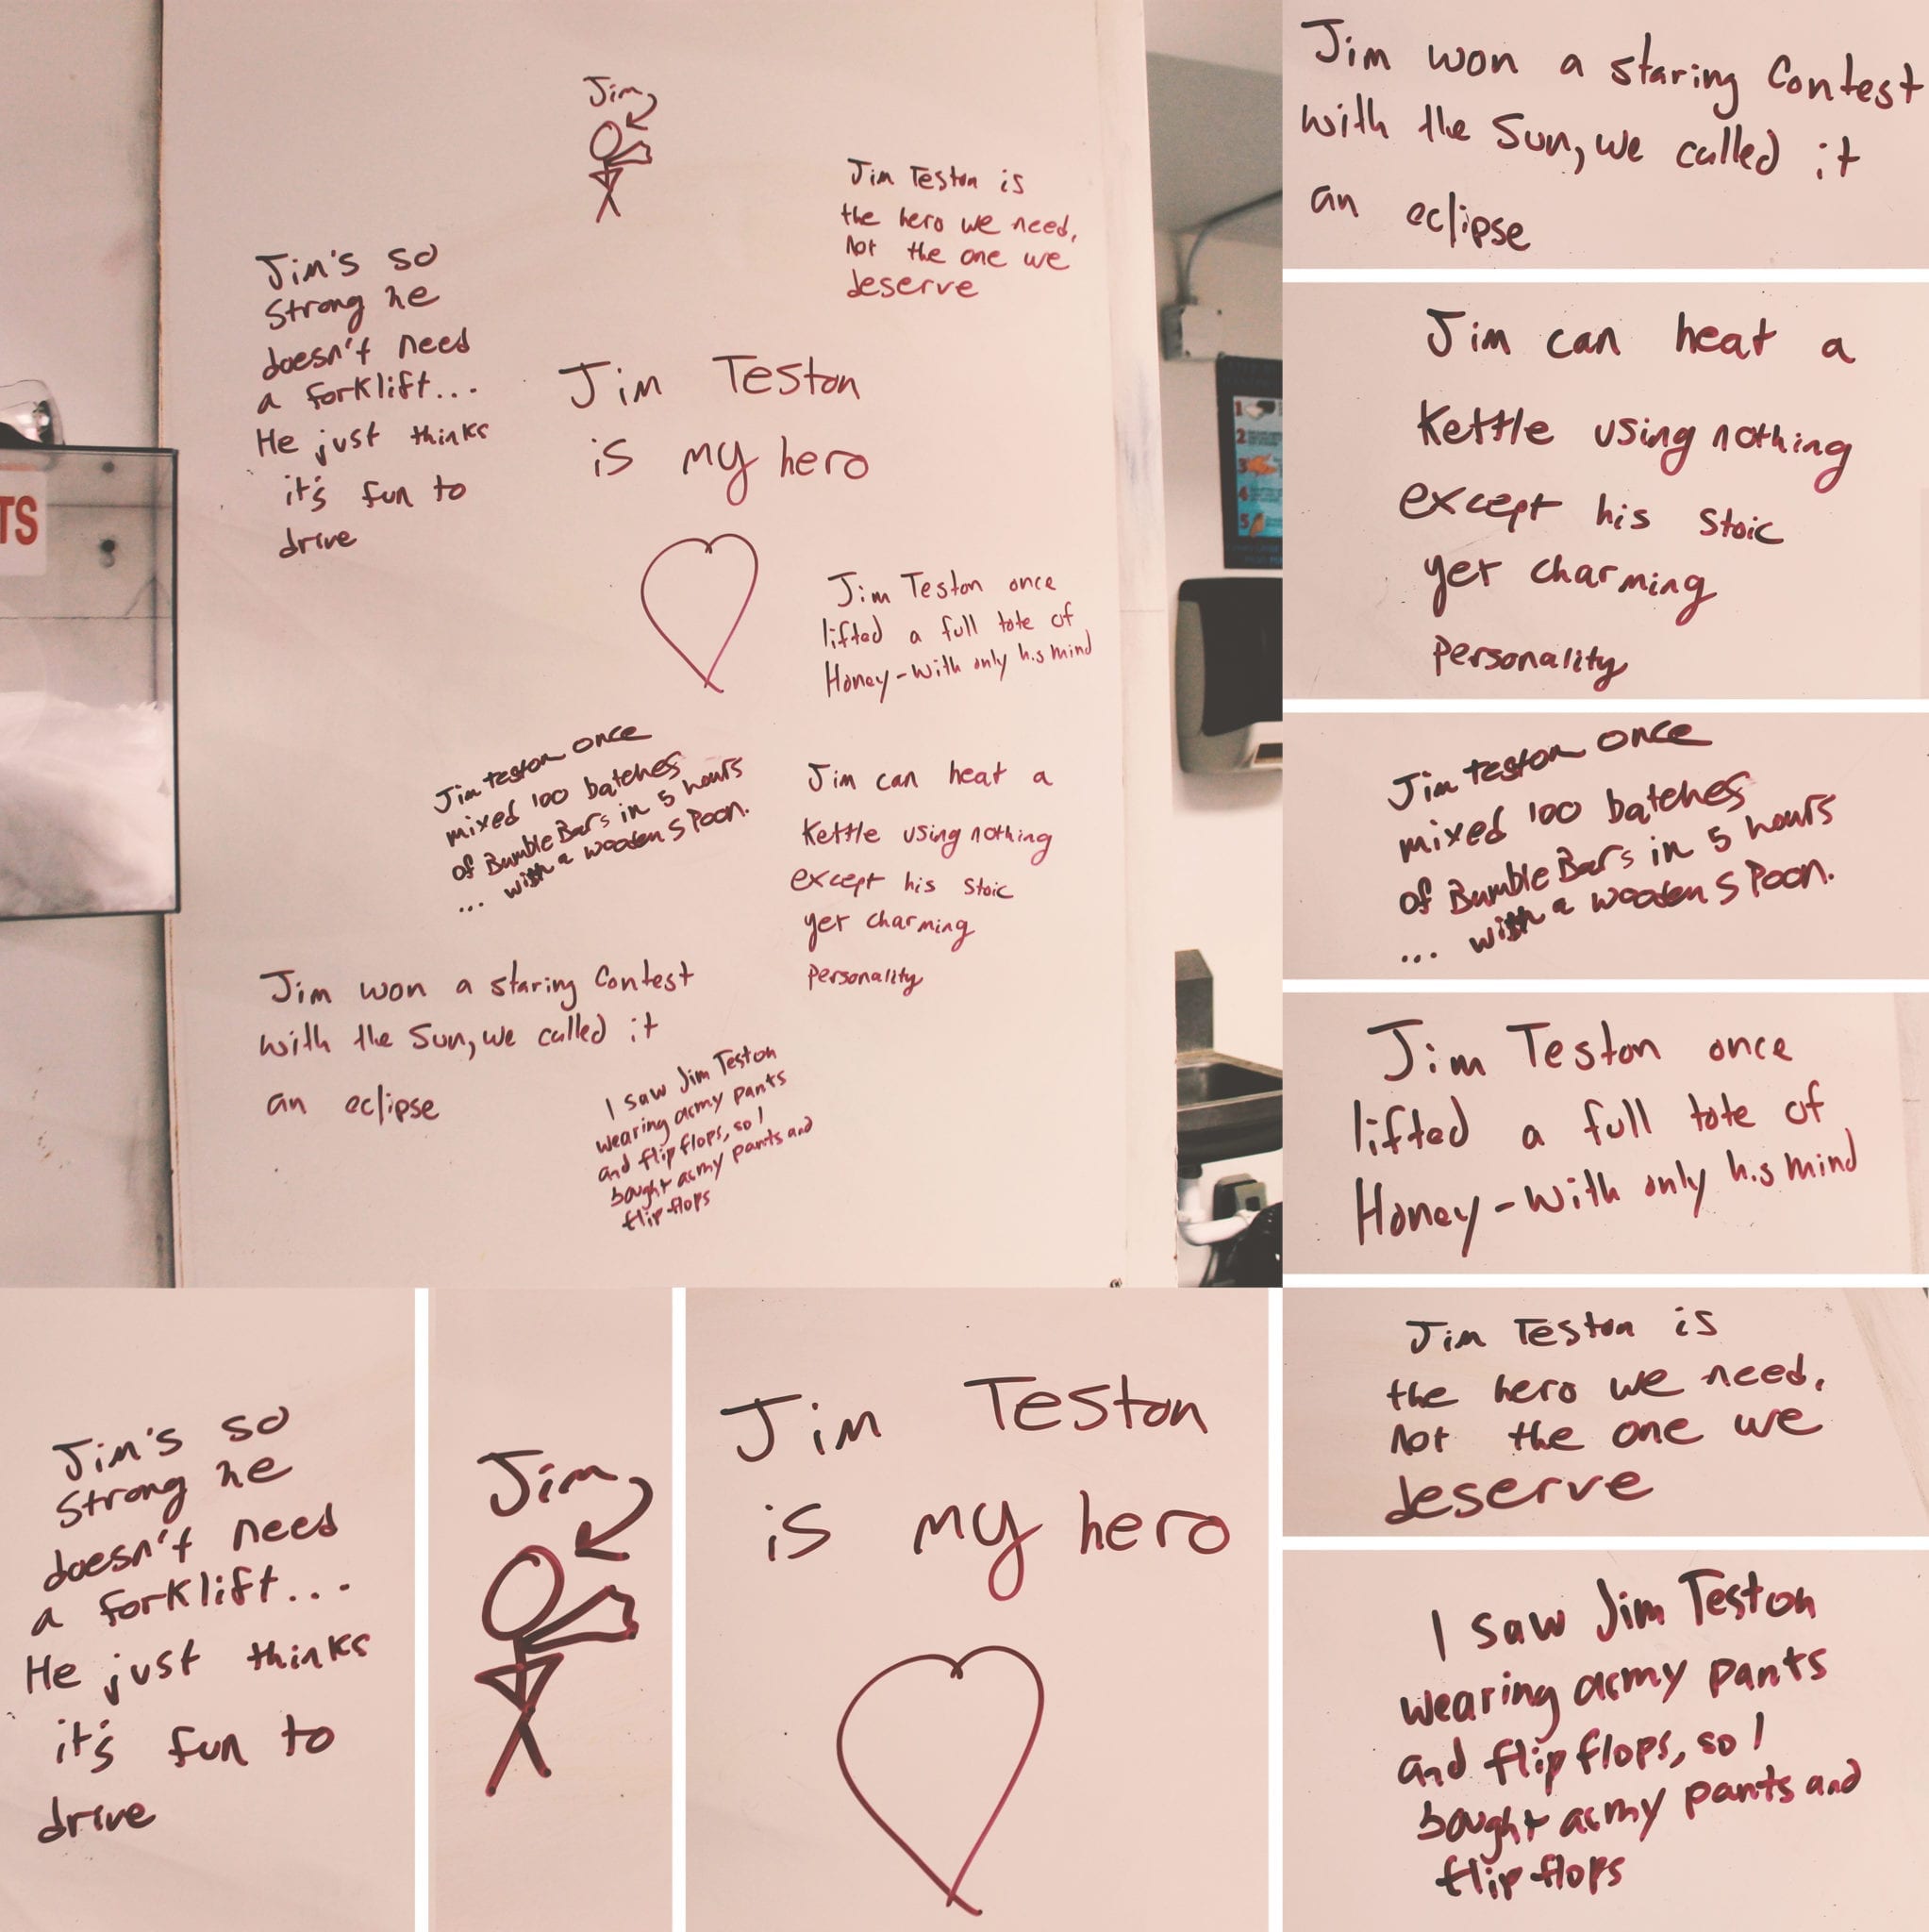 Jim
Jim Teston is
the hero we need,
Not the one we
deserve
Jim's so
Strong he
doesn't need
a forklift...
He just thinks
it's fun to
drive
Jim Teston
is my hero
TS
1
2
3
4
5
Jim Teston once
lifted a full tote of
Honey-with only his mind
Jim teston once
mixed 100 batches
of Bumble Bars in 5 hours
... with a wooden spoon.
Jim can heat a
Kettle using nothing
except his stoic
yet charming
personality
Jim won a staring Contest
with the Sun, we called it
an eclipse
I saw Jim Teston
wearing army pants
and flip flops, so I
bought army pants and
flip flops
Jim won a staring Contest
with the Sun, we called it
an eclipse
Jim can heat a
Kettle using nothing
except his stoic
yet charming
personality
Jim teston once
mixed 100 batches
of Bumble Bars in 5 hours
... with a wooden spoon.
Jim Teston once
lifted a full tote of
Honey-with only his mind
Jim's so
Strong he
doesn't need
a forklift...
He just thinks
it's fun to
drive
Jim
Jim Teston
is my hero
Jim Teston is
the hero we need,
Not the one we
deserve
I saw Jim Teston
wearing army pants
and flip flops, so I
bought army pants and
flip flops